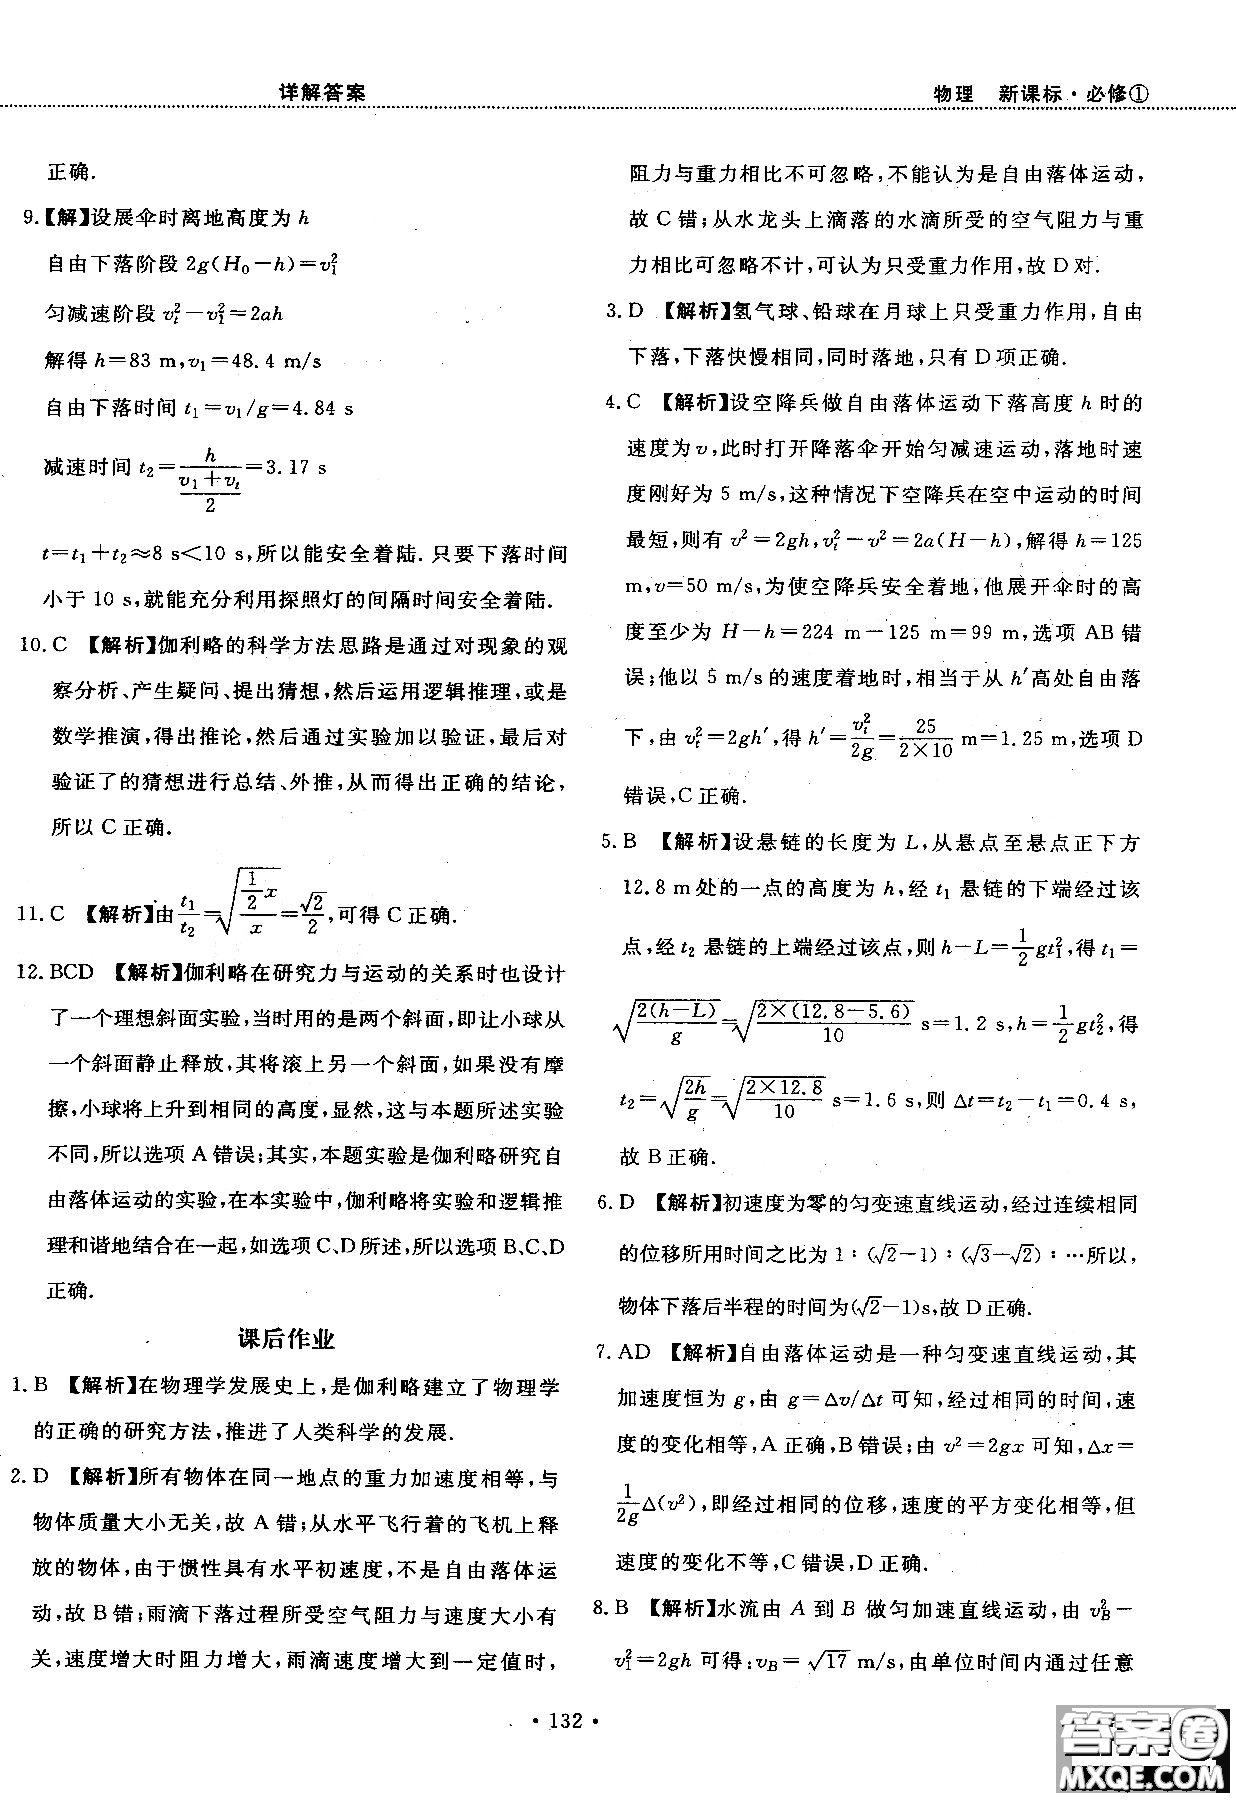 详解答案
物理 新课标·必修①
正确.
9.【解】设展伞时离地高度为 h
自由下落阶段 2g(H₀－h)＝v₁²
匀减速阶段 vₜ²－v₁²＝2ah
解得 h＝83 m,v₁＝48.4 m/s
自由下落时间 t₁＝v₁/g＝4.84 s
减速时间 t₂＝h/((v₁＋vₜ)/2)＝3.17 s
t＝t₁＋t₂≈8 s＜10 s,所以能安全着陆.只要下落时间
小于 10 s,就能充分利用探照灯的间隔时间安全着陆.
10.C 【解析】伽利略的科学方法思路是通过对现象的观
察分析、产生疑问、提出猜想,然后运用逻辑推理,或是
数学推演,得出推论,然后通过实验加以验证,最后对
验证了的猜想进行总结、外推,从而得出正确的结论,
所以 C 正确.
11.C 【解析】由t₁/t₂＝√((1/2)x/x)＝√2/2,可得 C 正确.
12.BCD 【解析】伽利略在研究力与运动的关系时也设计
了一个理想斜面实验,当时用的是两个斜面,即让小球从
一个斜面静止释放,其将滚上另一个斜面,如果没有摩
擦,小球将上升到相同的高度,显然,这与本题所述实验
不同,所以选项 A 错误;其实,本题实验是伽利略研究自
由落体运动的实验,在本实验中,伽利略将实验和逻辑推
理和谐地结合在一起,如选项C、D所述,所以选项B、C、D
正确.
课后作业
1.B 【解析】在物理学发展史上,是伽利略建立了物理学
的正确的研究方法,推进了人类科学的发展.
2.D 【解析】所有物体在同一地点的重力加速度相等,与
物体质量大小无关,故 A 错;从水平飞行着的飞机上释
放的物体,由于惯性具有水平初速度,不是自由落体运
动,故 B 错;雨滴下落过程所受空气阻力与速度大小有
关,速度增大时阻力增大,雨滴速度增大到一定值时,
阻力与重力相比不可忽略,不能认为是自由落体运动,
故 C 错;从水龙头上滴落的水滴所受的空气阻力与重
力相比可忽略不计,可认为只受重力作用,故 D 对.
3.D 【解析】氢气球、铅球在月球上只受重力作用,自由
下落,下落快慢相同,同时落地,只有 D 项正确.
4.C 【解析】设空降兵做自由落体运动下落高度 h 时的
速度为 v,此时打开降落伞开始匀减速运动,落地时速
度刚好为 5 m/s,这种情况下空降兵在空中运动的时间
最短,则有 v²＝2gh,vₜ²－v²＝2a(H－h),解得 h＝125
m,v＝50 m/s,为使空降兵安全着地,他展开伞时的高
度至少为 H－h＝224 m－125 m＝99 m,选项 AB 错
误;他以 5 m/s 的速度着地时,相当于从 h′高处自由落
下,由 vₜ²＝2gh′,得 h′＝vₜ²/2g＝25/(2×10) m＝1.25 m,选项 D
错误,C 正确.
5.B 【解析】设悬链的长度为 L,从悬点至悬点正下方
12.8 m处的一点的高度为 h,经 t₁ 悬链的下端经过该
点,经 t₂ 悬链的上端经过该点,则 h－L＝1/2gt₁²,得 t₁＝
√(2(h－L)/g)＝√(2×(12.8－5.6)/10) s＝1.2 s,h＝1/2gt₂²,得
t₂＝√(2h/g)＝√(2×12.8/10) s＝1.6 s,则 Δt＝t₂－t₁＝0.4 s,
故 B 正确.
6.D 【解析】初速度为零的匀变速直线运动,经过连续相同
的位移所用时间之比为 1∶(√2－1)∶(√3－√2)∶…所以,
物体下落后半程的时间为(√2－1)s,故 D 正确.
7.AD 【解析】自由落体运动是一种匀变速直线运动,其
加速度恒为 g,由 g＝Δv/Δt 可知,经过相同的时间,速
度的变化相等,A 正确,B 错误;由 v²＝2gx 可知,Δx＝
1/2gΔ(v²),即经过相同的位移,速度的平方变化相等,但
速度的变化不等,C 错误,D 正确.
8.B 【解析】水流由 A 到 B 做匀加速直线运动,由 v_B²－
v₁²＝2gh 可得:v_B＝√17 m/s,由单位时间内通过任意
·132·
答案圈
MXQE.COM